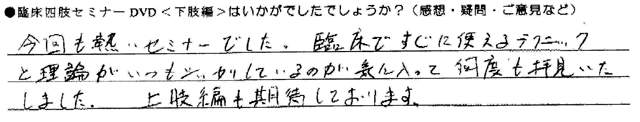 ●臨床四肢セミナーDVD＜下肢編＞はいかがでしたでしょうか？（感想・疑問・ご意見など）
今回も熱いセミナーでした。臨床ですぐに使えるテクニック
と理論がいつもしっかりしているのが気に入って何度も拝見いた
しました。 上肢編も期待しております。